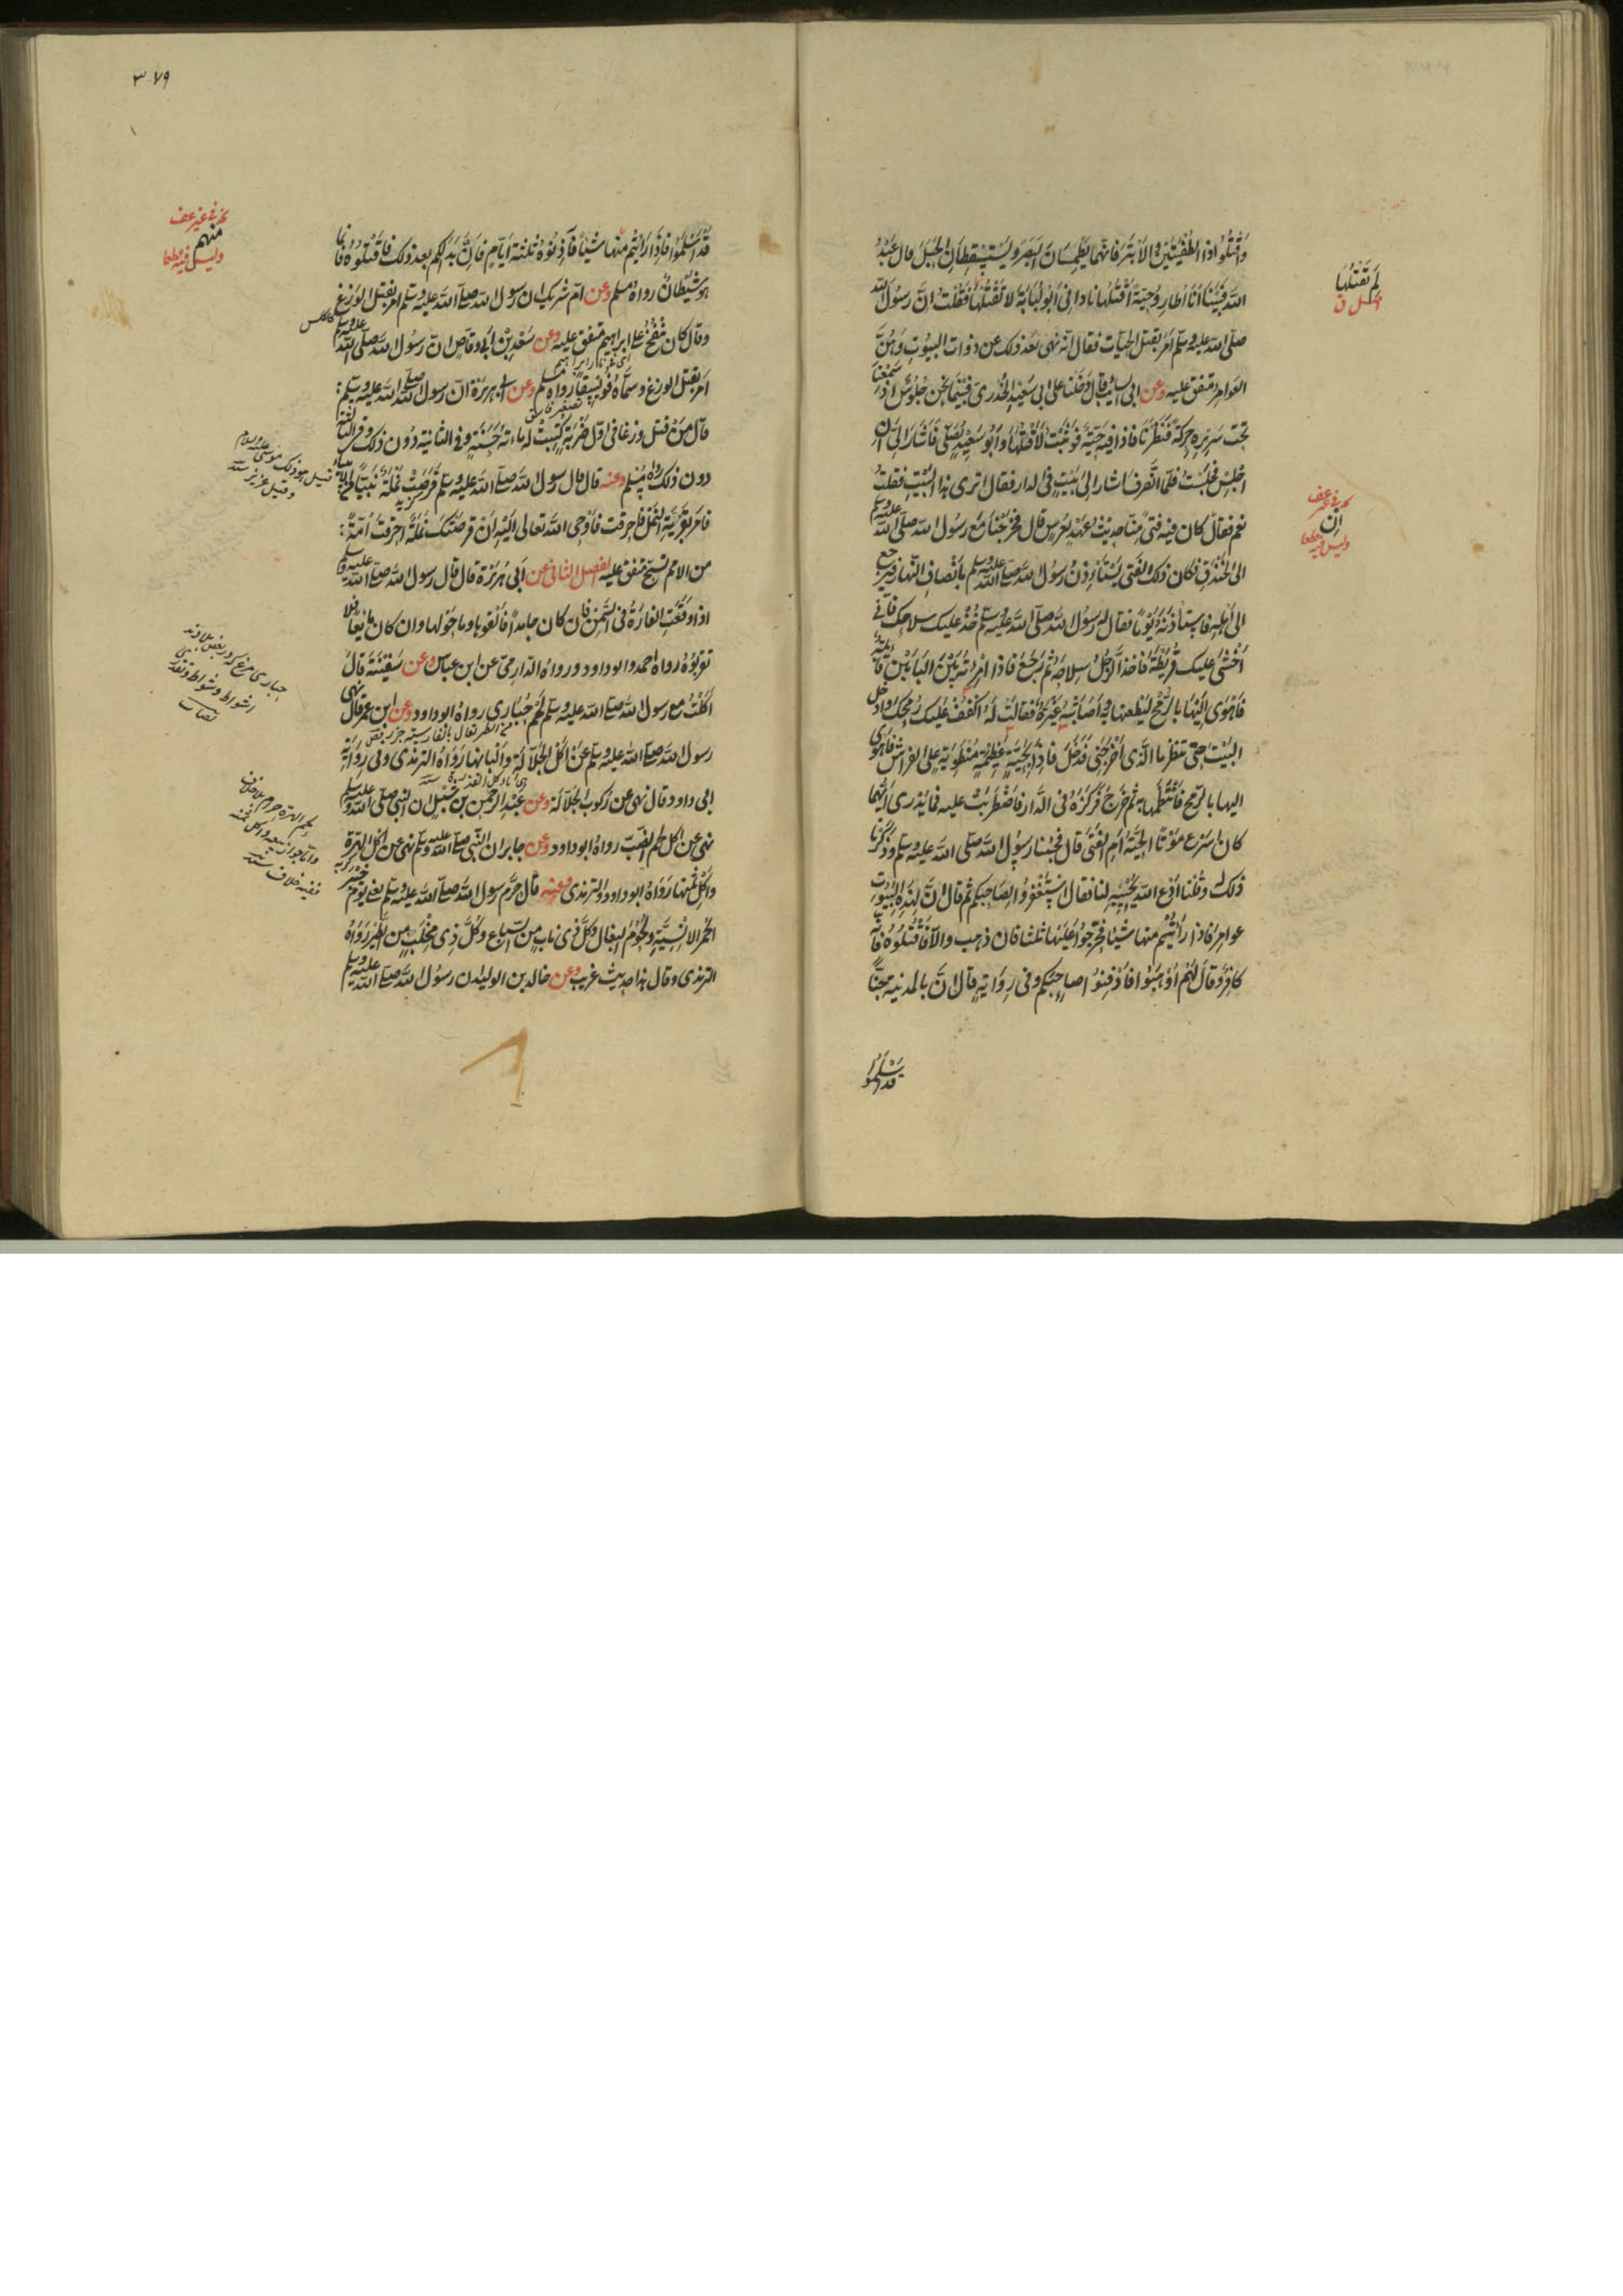 وَاقْتُلُوا ذا الطُفْيَتَيْنِ والأبْتَرَ فانّهما يَطْمِسَانِ البَصَرَ ويَسْتَسْقِطانِ الحَبَلَ قال عَبْدُ
الله فبَيْنَا أنا أُطارِدُ حيّةً أقْتُلُها نادانى أبو لُبَابَةَ لا تَقْتُلْها فقلتُ إنّ رسولَ الله
صلى الله عليه وسلم أمر بقتل الحيات فقال انّه نهى بعد ذلك عن ذوات البيوت وهُنَّ
العوامر متفق عليه وعن ابى السائب قال دخلنا على ابى سعيد الخُدرى فبينما نحن جلوس اذ سَمِعْنَا
تحت سريره حركة فنظرنا فاذا فيه حيّة فوَثَبْتُ لأقتلها وأبو سعيد يُصلّى فأشار إلىّ أن
اجلِسْ فجلستُ فلمّا انصرف اشار إلى بَيْتٍ فى الدار فقال اترى هذا البيت فقلتُ
نعم فقال كان فيه فتىً منّا حديثُ عَهْدٍ بعُرسٍ قال فخرجنا مع رسول الله صلى الله عليه وسلم
الى الخندق فكان ذلك الفتى يستأذنُ رسول الله صلى الله عليه وسلم بأنصاف النهار فيرجع
الى اهله فاستأذنه يومًا فقال له رسول الله صلى الله عليه وسلم خُذْ عليك سلاحك فانّى
أخشى عليك قُرَيْظَةَ فأخذ الرجلُ سِلاحَهُ ثم رَجَعَ فاذا امْرَأتُهُ بين البابين قائمةٌ
فأهوى إليها بالرمح ليَطعنها به وأصابته غَيْرَةٌ فقالت له اكفُفْ عليك رُمحك وادخل
البيت حتى تنظر ما الذى أخرجنى فدخل فاذا بحيّةٍ عظيمةٍ منطويةٍ على الفراش فأهوى
اليها بالرمح فانتظمها به ثم خرج فركزه فى الدّار فاضطربت عليه فما يُدرى أيُّهما
كان أسرع موتًا الحيّةُ أمِ الفتى قال فجئنا رسول الله صلى الله عليه وسلم وذكرنا
ذلك له وقلنا ادعُ الله يُحْيِيه لنا فقال استغفروا لصاحبكم ثم قال انّ لهذه البيوت
عوامر فاذا رأيتم منها شيئا فحرّجوا عليها ثلثا فان ذهب والّا فاقتلوه فانّه
كافر وقال لهم اذهبوا فادفنوا صاحبكم وفى رواية قال انّ بالمدينة جنًّا
قد اسلموا
لم تقتلها
اصل ن
ان
وليس فيه قطعا
٣٧٩
قد أسلموا فاذا رأيتم منها شيئا فآذنوه ثلثة ايام فان بدا لكم بعد ذلك فاقتلوه فانما
هو شيطان رواه مسلم وعن امّ شريك ان رسول الله صلى الله عليه وسلم امر بقتل الوزغ
وقال كان ينفخ على ابراهيم متفق عليه وعن سعد بن ابى وقاص انّ رسول الله صلى الله عليه وسلم
امر بقتل الوزغ وسمّاه فويسقا رواه مسلم وعن ابى هريرة انّ رسول الله صلى الله عليه وسلم
قال من قتل وزغا فى اوّل ضربةٍ كتبت له مائة حسنة وفى الثانية دون ذلك وفى الثالثة
دون ذلك رواه مسلم وعنه قال قال رسول الله صلى الله عليه وسلم قرصت نملة نبيا من الانبياء
فامر بقرية النمل فاحرقت فأوحى الله تعالى اليه ان قرصتك نملة احرقت امّةً
من الامم تسبح متفق عليه الفصل الثانى عن أبى هريرة قال قال رسول الله صلى الله عليه وسلم
اذا وقعت الفارة فى السمن فان كان جامدا فالقوها وما حولها وان كان مائعا فلا
تقربوه رواه احمد وابو داود ورواه الدارمى عن ابن عباس وعن سفينة قال
اكلت مع رسول الله صلى الله عليه وسلم لحم حُبارى رواه ابو داود وعن ابن عمر قال نهى
رسول الله صلى الله عليه وسلم عن اكل الجلّالة والبانها رواه الترمذى وفى رواية
ابى داود قال نهى عن ركوب الجلّالة وعن عبد الرحمن بن شبل ان النبى صلى الله عليه وسلم
نهى عن اكل لحم الضبّ رواه ابو داود وعن جابر ان النبى صلى الله عليه وسلم نهى عن اكل الهرّة
واكل ثمنها رواه ابو داود والترمذى وعنه قال حرّم رسول الله صلى الله عليه وسلم يعنى يوم خيبر
الحمر الانسيّة ولحوم البغال وكلّ ذى ناب من السباع وكلّ ذى مخلب من الطير رواه
الترمذى وقال هذا حديث غريب وعن خالد بن الوليد ان رسول الله صلى الله عليه وسلم
منهم
وليس فيه قطعا
قيل هو ذلك موسى عليه السلام
وقيل عزير